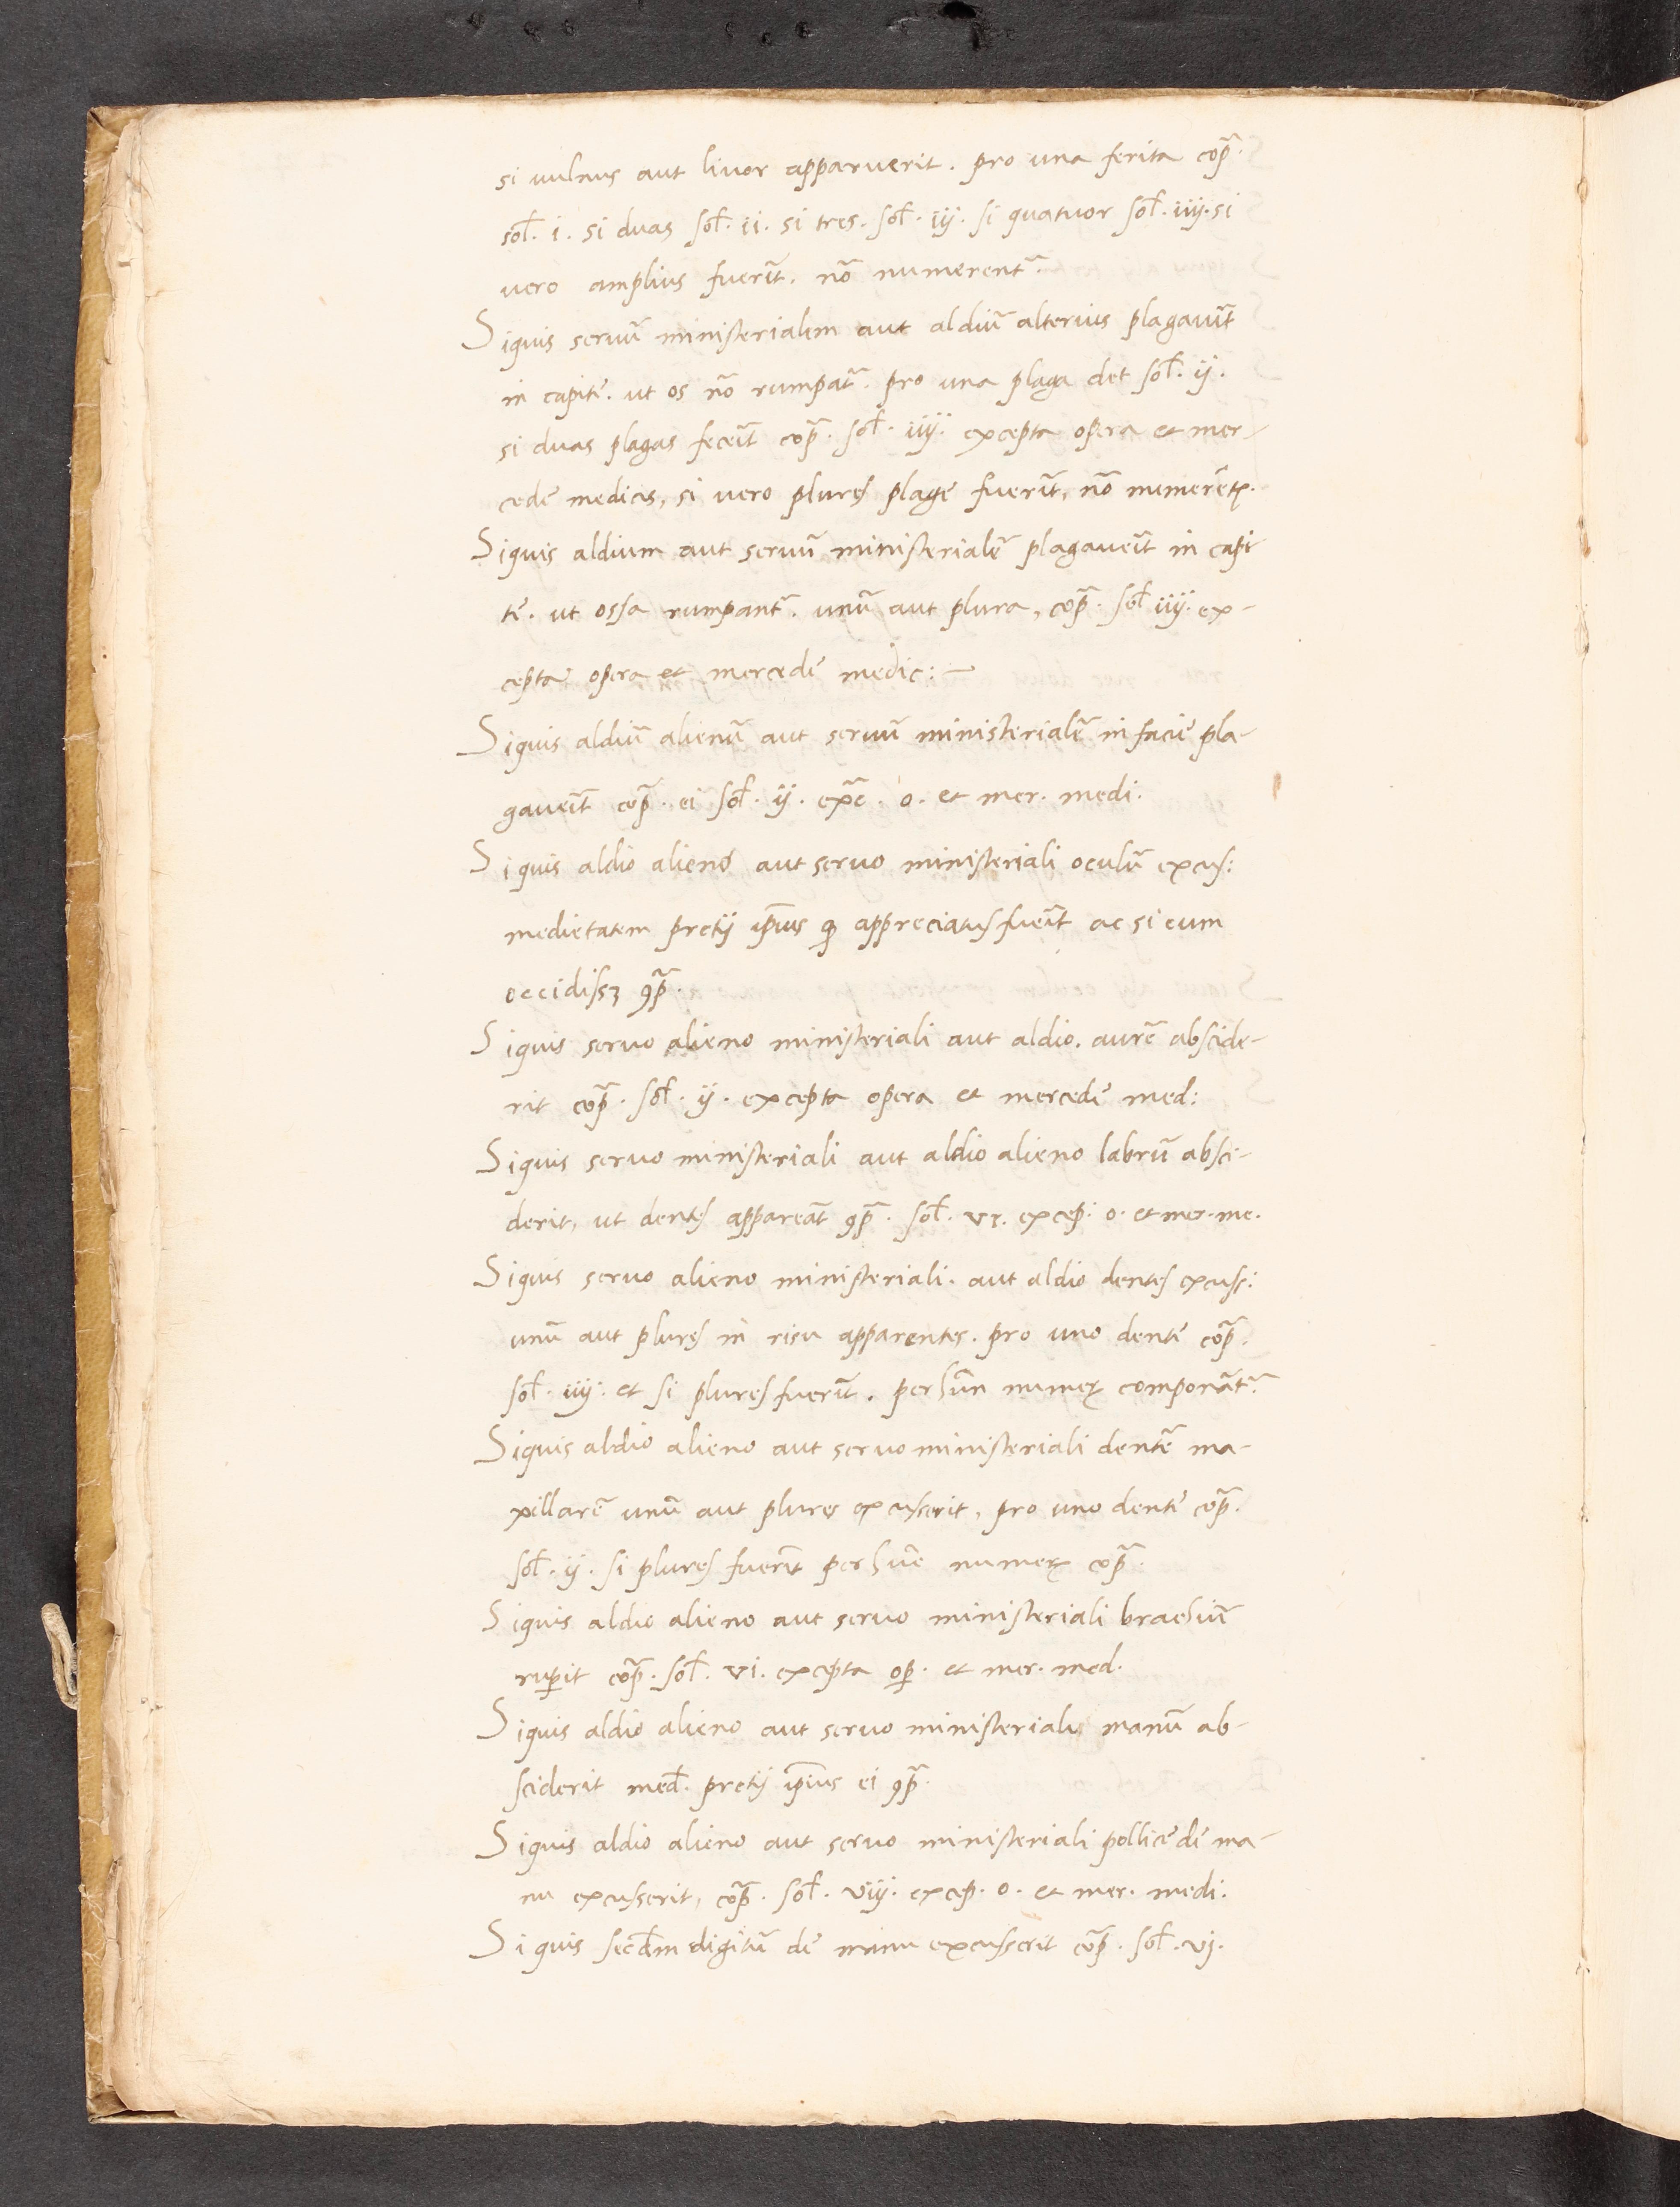 si vulnus aut livor apparuerit. pro una ferita cōp̄.
sol̄. i. si duas sol̄. ii. si tres. sol̄. iij. si quatuor sol̄. iiij. si
vero amplius fuerīt. nō numerent᷑.
Siquis seruū ministerialem aut aldiū alterius plagauīt
in capite. ut os nō rumpat᷑. pro una plaga det sol̄. ij.
si duas plagas feceīt cōp̄. sol̄. iiij. excepta opera et mer-
cede medicis, si vero plures plage fuerīt, nō numerēt᷑.
Siquis aldium aut seruū ministerialē plagaueīt in capi
te. ut ossa rumpant᷑. unū aut plura, cōp̄. sol̄ iiij. ex-
cepta opera et mercede medic:—
Siquis aldiū alienū aut seruū ministerialē in facie pla-
gaueīt cōp̄. ei sol̄. ij. exc̄. o. et mer. medi.
Siquis aldio alieno aut seruo ministeriali oculū excus:
medietatem pretij ip̄ius qͦ appreciatus fueīt ac si eum
occidissꝫ ꝯp̄.
Siquis seruo alieno ministeriali aut aldio. aurē abscide-
rit cōp̄. sol̄. ij. excepta opera et mercede med:
Siquis seruo ministeriali aut aldio alieno labrū absci-
derit, ut dentes appareāt ꝯp̄. sol̄. vi. excep: o. et mer. me.
Siquis seruo alieno ministeriali. aut aldio dentes excuss:
unū aut plures in risu apparentes. pro uno dente cōp̄.
sol̄. iiij. et si plures fuerīt. per hūn numeꝝ componāt᷑.
Siquis aldio alieno aut seruo ministeriali dentē ma-
xillarē unū aut plures excusserit, pro uno dente cōp̄.
sol̄. ij. si plures fuerīt per hūc numeꝝ cōp̄.
Siquis aldio alieno aut seruo ministeriali brachiū
ruꝑit cōp̄. sol̄. vi. excepta oꝑ. et mer. med.
Siquis aldio alieno aut seruo ministeriali manū ab-
sciderit med̄. pretij ip̄ius ei ꝯp̄.
Siquis aldio alieno aut seruo ministeriali pollicē de ma-
nu excusserit, cōp̄. sol̄. viij. excep. o. et mer. medi.
Si quis secd̄m digitū de manu excusserit cōp̄. sol̄. vj.